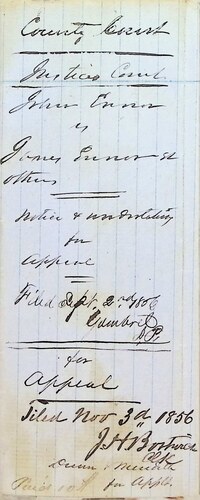 County Court
Justices Court
John Ennor
vs
James Ennor et
others
Notice & undertaking
for
appeal
Filed Sept. 2nd 1856
J.P.
for
Appeal
Filed Nov 3d 1856
J H Bostwick
Clk
Dunn & Meredith
for Applt